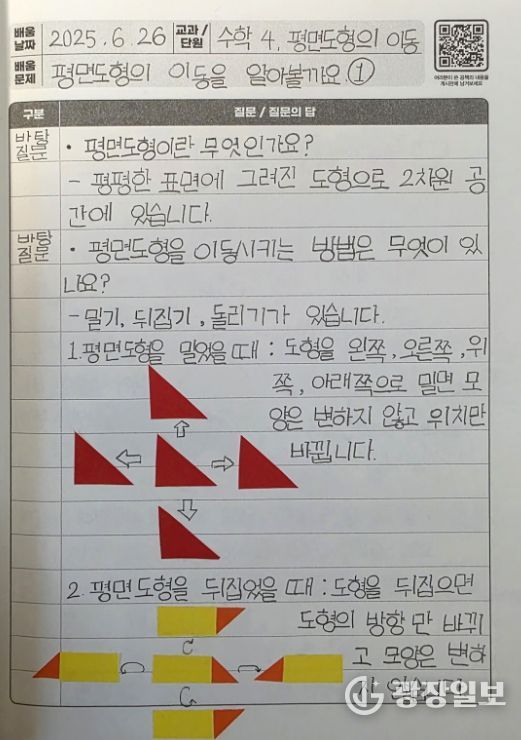 배움 날짜 2025. 6. 26 교과/단원 수학 4. 평면도형의 이동
배움 문제 평면도형의 이동을 알아볼까요 ①
구분 질문 / 질문의 답
바탕 질문 • 평면도형이란 무엇인가요?
- 평평한 표면에 그려진 도형으로 2차원 공
간에 있습니다.
바탕 질문 • 평면도형을 이동시키는 방법은 무엇이 있
나요?
- 밀기, 뒤집기, 돌리기가 있습니다.
1. 평면도형을 밀었을 때 : 도형을 왼쪽, 오른쪽, 위
쪽, 아래쪽으로 밀면 모
양은 변하지 않고 위치만
바뀝니다.
2. 평면도형을 뒤집었을 때 : 도형을 뒤집으면
도형의 방향만 바뀌
고 모양은 변하
지 않습니다
광장일보